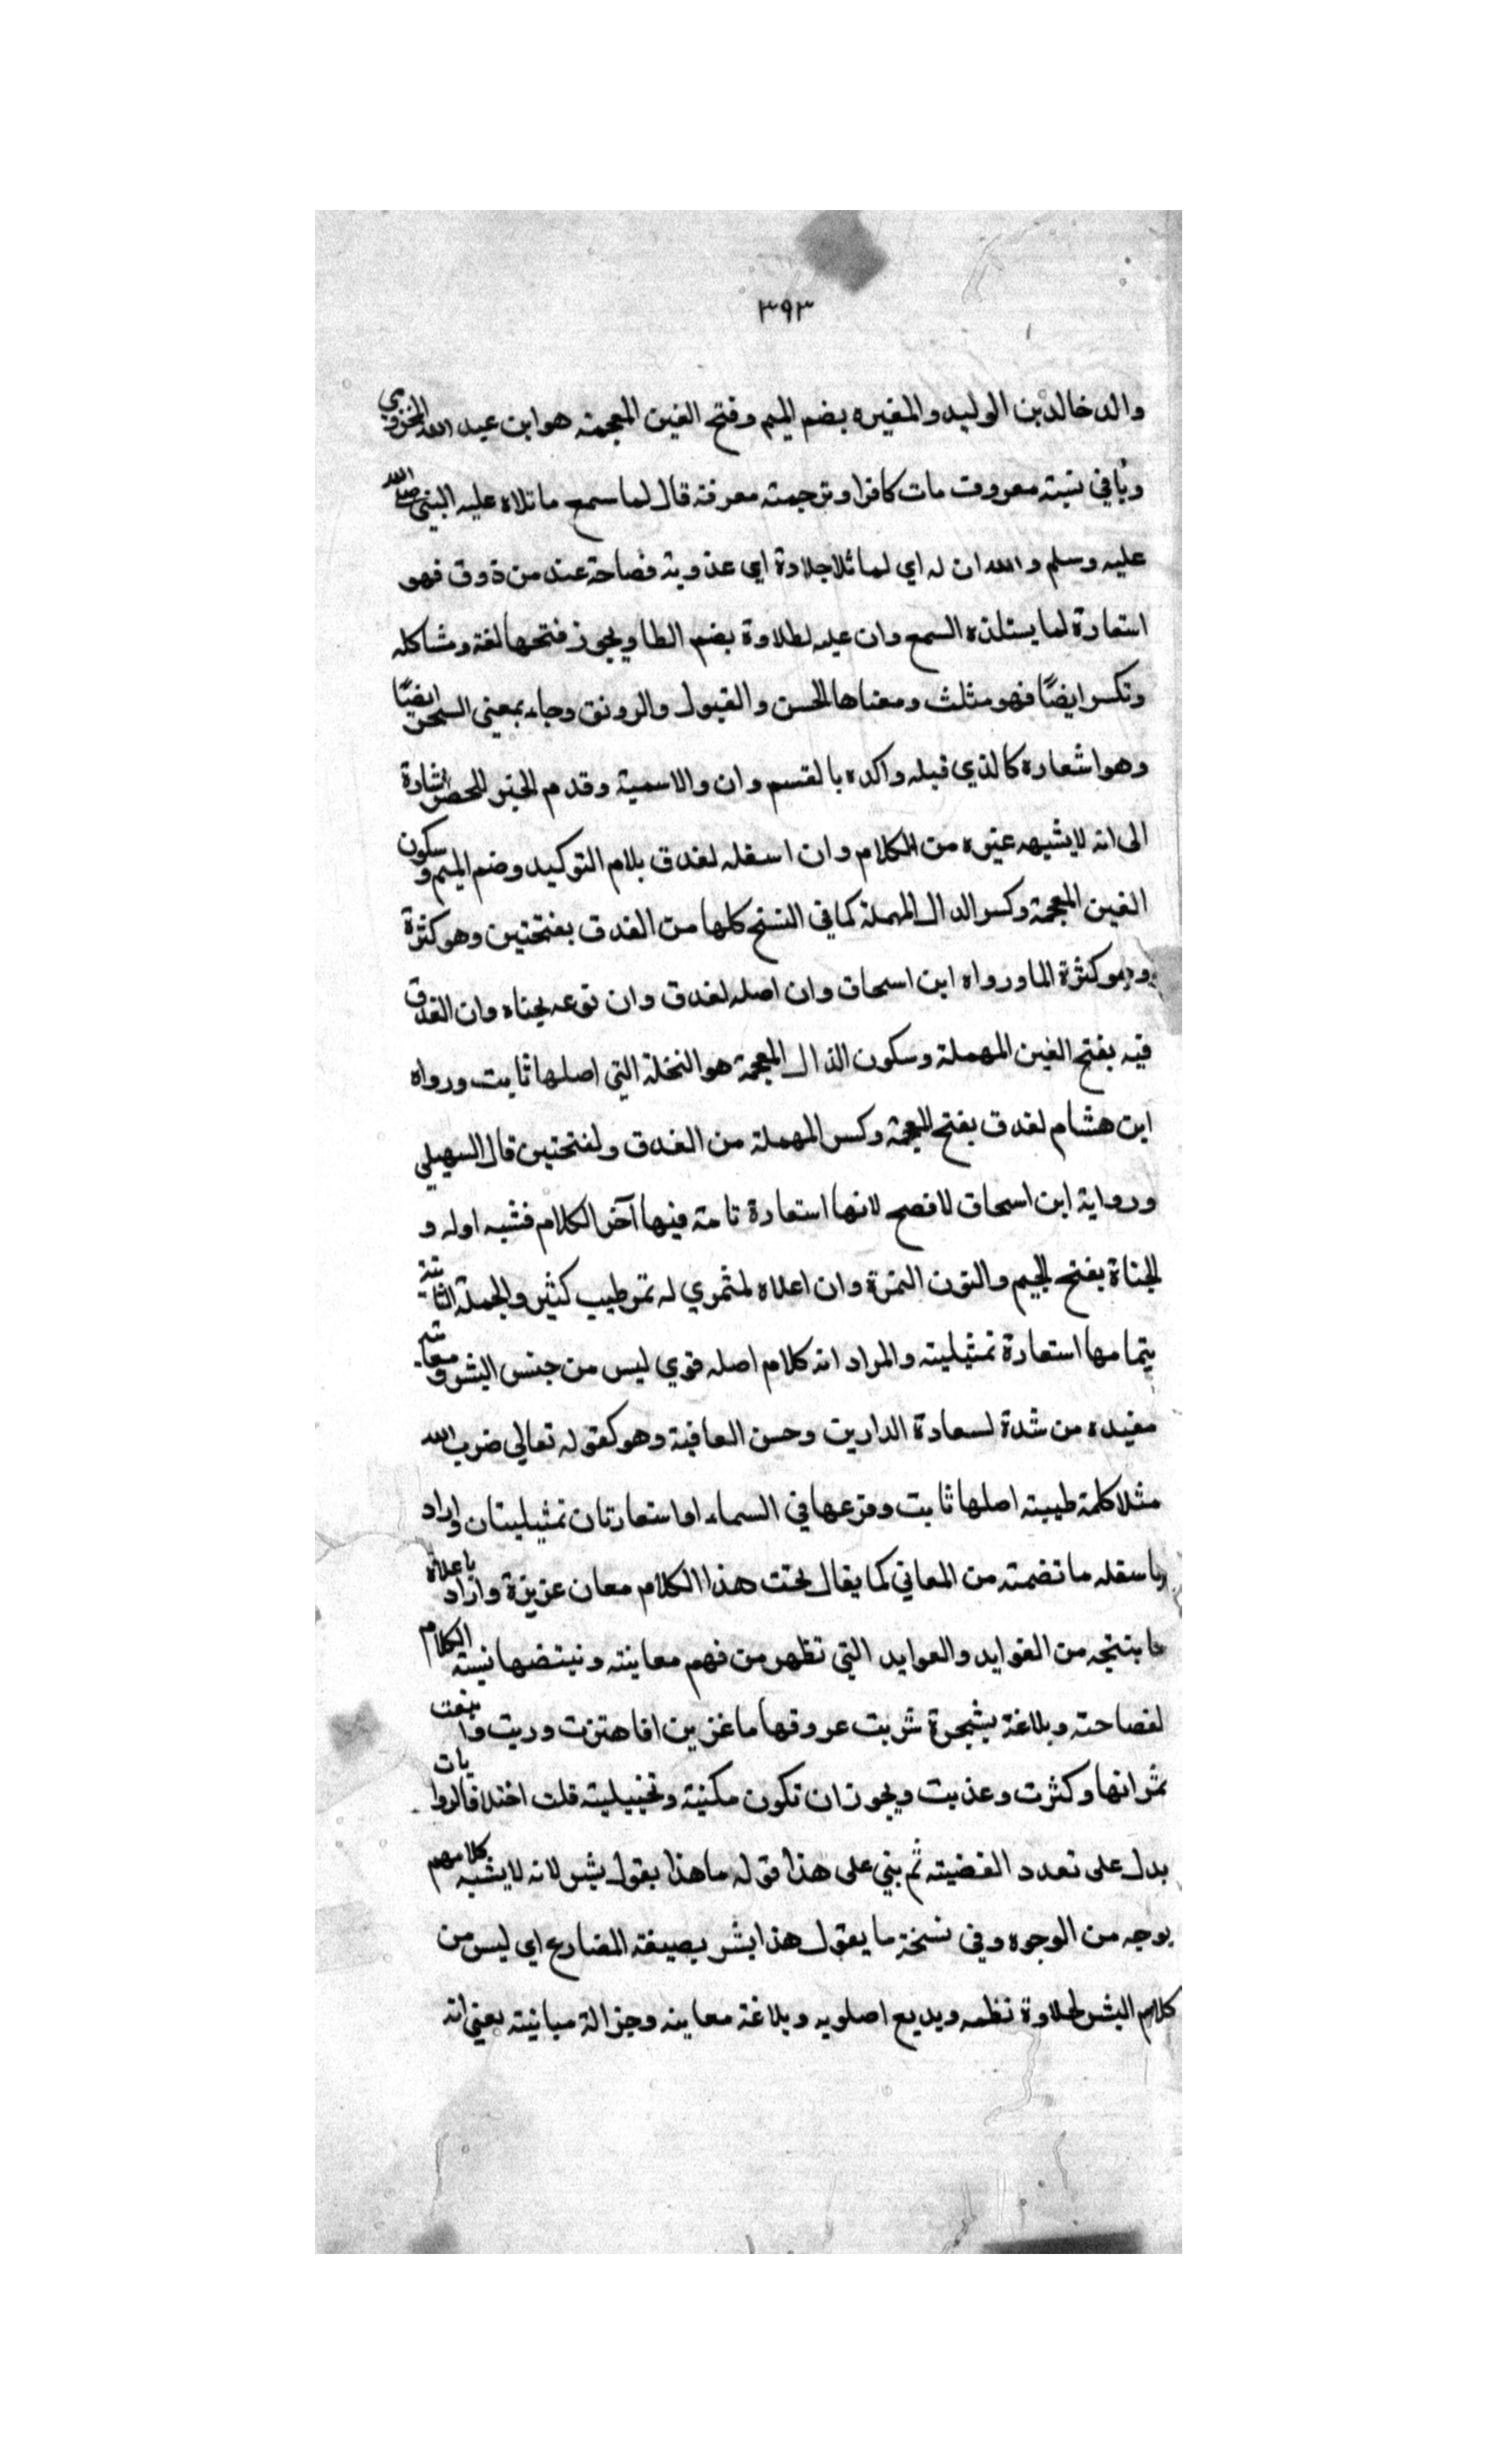 ٣٩٣
والد خالد بن الوليد والمغيره بضم الميم وفتح الغين المعجمة هو ابن عبد الله المخزومي
وباقي نسبته معروف مات كافرا وترجمته معرفة قال لما سمع ما تلاه عليه النبي صلى الله
عليه وسلم والله ان له اي لما تلا حلاوة اي عذوبة فصاحة عند من ذوق فهو
استعارة لما يستلذه السمع وان عليه لطلاوة بضم الطا ويجوز فتحها لغة ومشاكله
وتكسر ايضًا فهو مثلث ومعناها الحسن والقبول والرونق وجاء بمعنى السحر ايضًا
وهو اشعاره كالذي قبله واكده بالقسم وان والاسمية وقدم الخبر للحصر اشارة
الى انه لا يشبهه غيره من الكلام وان اسفله لغدق بلام التوكيد وضم الميم وسكون
الغين المعجمة وكسر الدال المهملة كما في النسخ كلها من الغدق بفتحتين وهو كثرة
وهو كثرة الما ورواه ابن اسحاق وان اصله لغدق وان نوعه لجناه وان الغدق
فيه بفتح الغين المهملة وسكون الذال المعجمة هو النخلة التي اصلها ثابت ورواه
ابن هشام لغدق بفتح المعجمة وكسر المهملة من الغدق ولفتحتين قال السهيلي
ورواية ابن اسحاق لافصح لانها استعارة تامة فيها آخر الكلام فشبه اوله و
الجناة بفتح الجيم والنون الثمرة وان اعلاه لمثمر اي له ثمر طيب كثير والجملة الثانية
بتمامها استعارة تمثيلية والمراد انه كلام اصله قوي ليس من جنس البشر ومعانيه
مفيده من شدة لسعادة الدارين وحسن العاقبة وهو كقوله تعالى ضرب الله
مثلا كلمة طيبة اصلها ثابت وفرعها في السماء اواستعارتان تمثيليتان واراد
باسفله ما تضمنه من المعاني كما يقال تحت هذا الكلام معان عزيزة واراد باعلاه
ما ينتجه من الفوايد والعوايد التي تظهر من فهم معاينه ونبتضها نسبة الكلام
لفصاحته وبلاغة بشجرة شربت عروقها ما غزير افاهتزت وربت واينعت
ثمراتها وكثرت وعذبت ويجوز ان تكون مكنية وتخييلية قلت اختلاف الروايات
يدل على تعدد القضيته ثم بني على هذا قوله ما هذا بقول بشر لانه لا يشبه كلامهم
بوجه من الوجوه وفي نسخة ما يقول هذا بشر بصيغة المضارع اي ليس من
كلام البشر لحلاوة نظمه وبديع اصلوبه وبلاغة معاينه وجزالة مبانيته يعني انه